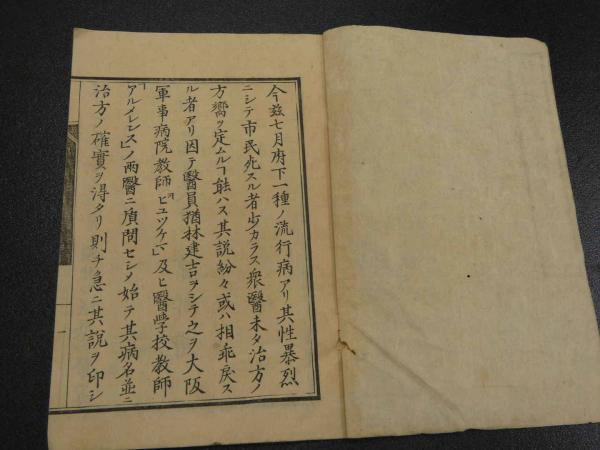 今玆七月府下一種ノ流行病アリ其性暴烈
ニシテ市民死スル者少カラス衆醫未タ治方ノ
方嚮ヲ定ムルヿ能ハス其説紛々或ハ相乖戻ス
ル者アリ因テ醫員猶林建吉ヲシテ之ヲ大阪
軍事病院教師「ビュツケマ」及ヒ醫學校教師
「アルメレンス」ノ両醫ニ質問セシメ始テ其病名並ニ
治方ノ確實ヲ得タリ則チ急ニ其説ヲ印シ